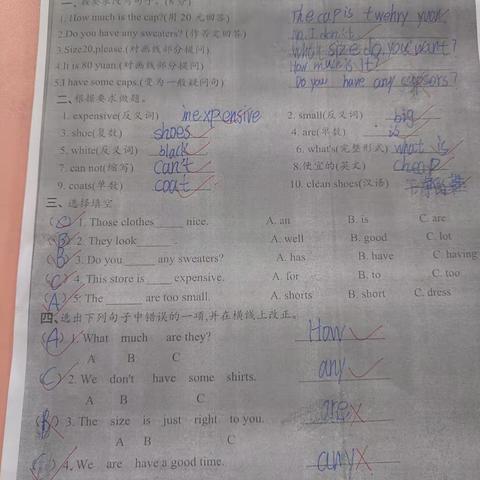 1. How much is the cap?(用 20 元回答) The cap is twehry yuan
2.Do you have any sweaters? (作否定回答) No, I don't
3.Size20,please.(对画线部分提问) What size do you want?
4.It is 80 yuan.(对画线部分提问) How much is It?
5.I have some caps.(变为一般疑问句) Do you have any
二、根据要求做题。
1. expensive(反义词) inexpensive 2. small(反义词) big
3. shoe(复数) shoes 4. are(单数) is
5. white(反义词) black 6. what's(完整形式) what is
7. can not(缩写) can't 8.便宜的(英文) cheap
9. coats(单数) coat 10. clean shoes(汉语) 干净
三、选择填空
(C) 1. Those clothes ____ nice. A. an B. is C. are
(B) 2. They look ____ . A. well B. good C. lot
(B) 3. Do you ____ any sweaters? A. has B. have C. having
(C) 4. This store is ____ expensive. A. for B. to C. too
(A) 5. The ____ are too small. A. shorts B. short C. dress
四、选出下列句子中错误的一项,并在横线上改正。
(A) 1. What much are they? How
A B C
(C) 2. We don't have some shirts. any
A B C
(B) 3. The size is just right to you. are
A B C
4. We are have a good time. any